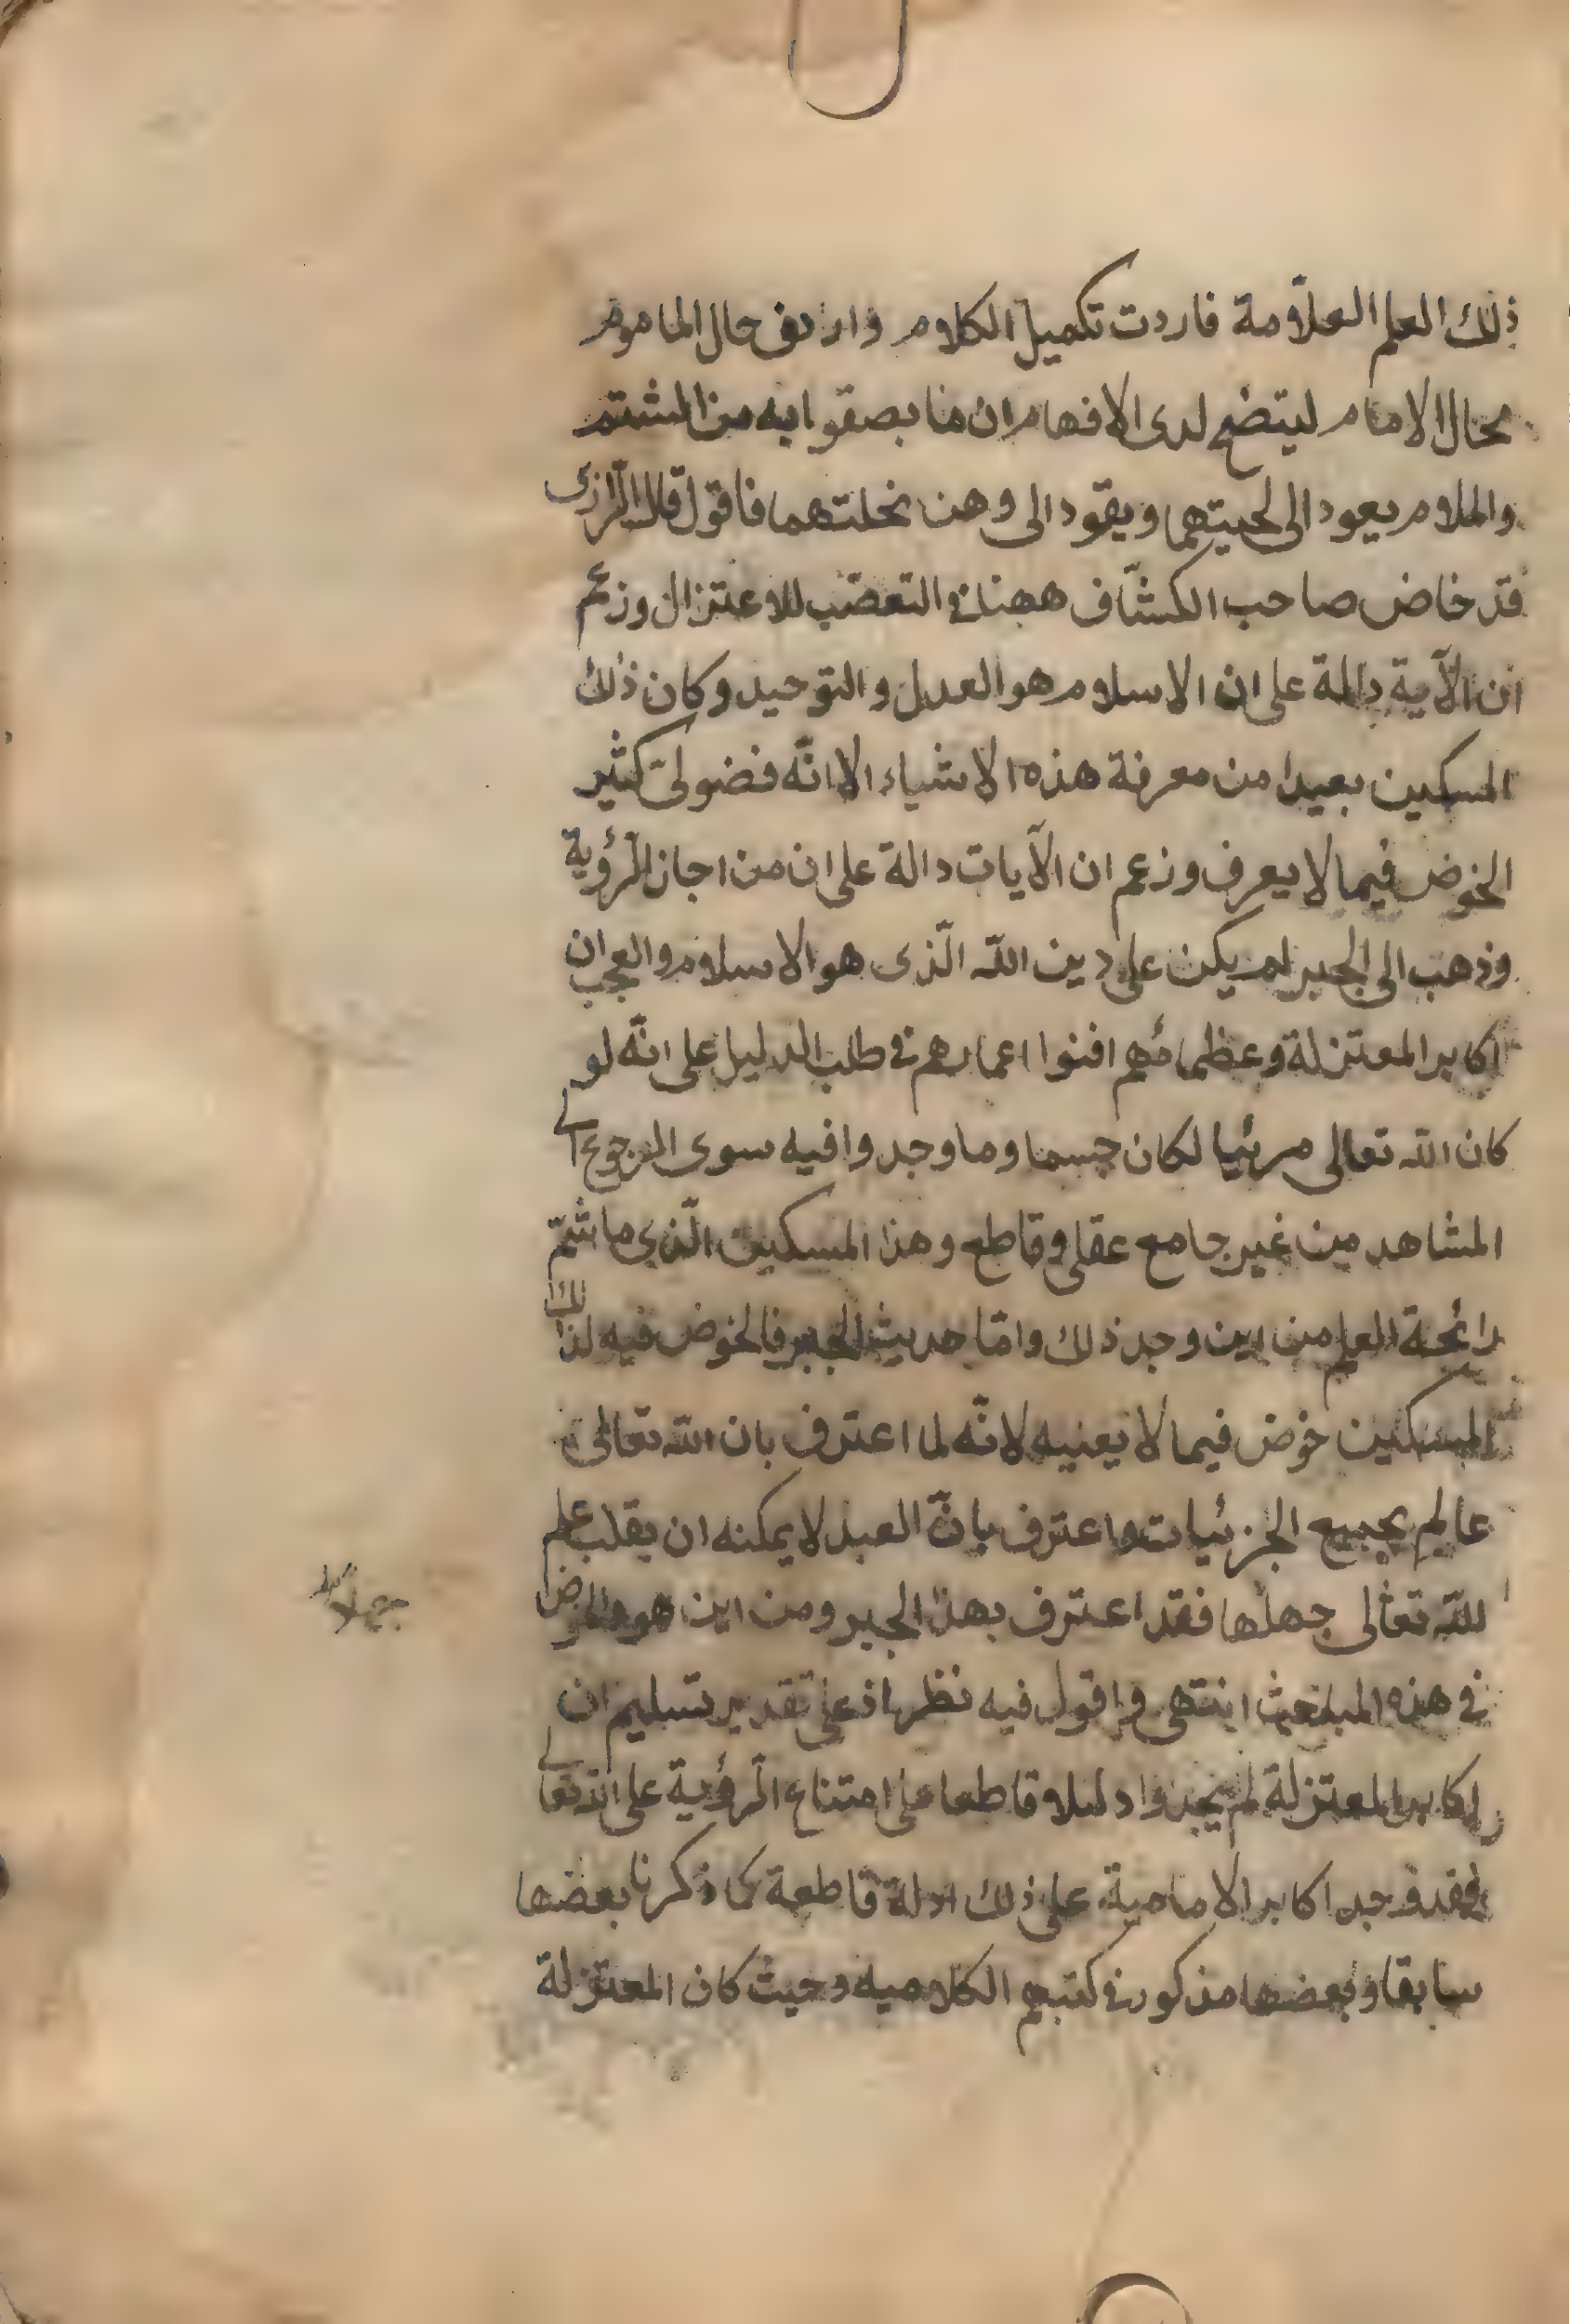 ذلك العلم العلّامة فاردت تكميل الكلام واردف حال الماموم
بحال الامام ليتضح لدى الافهام ان ما بصقوا به من الشتم
والملام يعود الى لحيتهما ويقود الى وهن نحلتهما فاقول قال الرّازى
قد خاض صاحب الكشّاف ههنا فى التعصّب للاعتزال وزعم
ان الآية دالة على ان الاسلام هو العدل و التوحيد وكان ذلك
المسكين بعيدا من معرفة هذه الاشياء الا انّه فضولىّ كثير
الخوض فيما لا يعرف وزعم ان الآيات دالة على ان من اجاز الرّؤية
وذهب الى الجبر لم يكن على دين اللّه الّذى هو الاسلام والعجب ان
اكابر المعتزلة وعظمائهم افنوا اعمارهم فى طلب الدليل على انّه لو
كان اللّه تعالى مرئيا لكان جسما وما وجدوا فيه سوى الرجوع الى
المشاهد من غير جامع عقلى وقاطع وهذا المسكين الّذى ما شمّ
رائحة العلم من اين وجد ذلك وامّا حديث الجبر فالخوض فيه لذلك
المسكين خوض فيما لا يعنيه لانّه لما اعترف بان اللّه تعالى
عالم بجميع الجزئيات واعترف بانّ العبد لا يمكنه ان يقلب علم
اللّه تعالى جهلا فقد اعترف بهذا الجبر ومن اين هو والخوض
جهلا
فى هذه المباحث انتهى واقول فيه نظر اذ على تقدير تسليم ان
اكابر المعتزلة لم يجدوا دليلا قاطعا على امتناع الرّؤية على اللّه تعالى
فقد وجد اكابر الامامية على ذلك ادلة قاطعة كما ذكرنا بعضها
سابقا وبعضها مذكور فى كتبهم الكلاميه وحيث كان المعتزلة